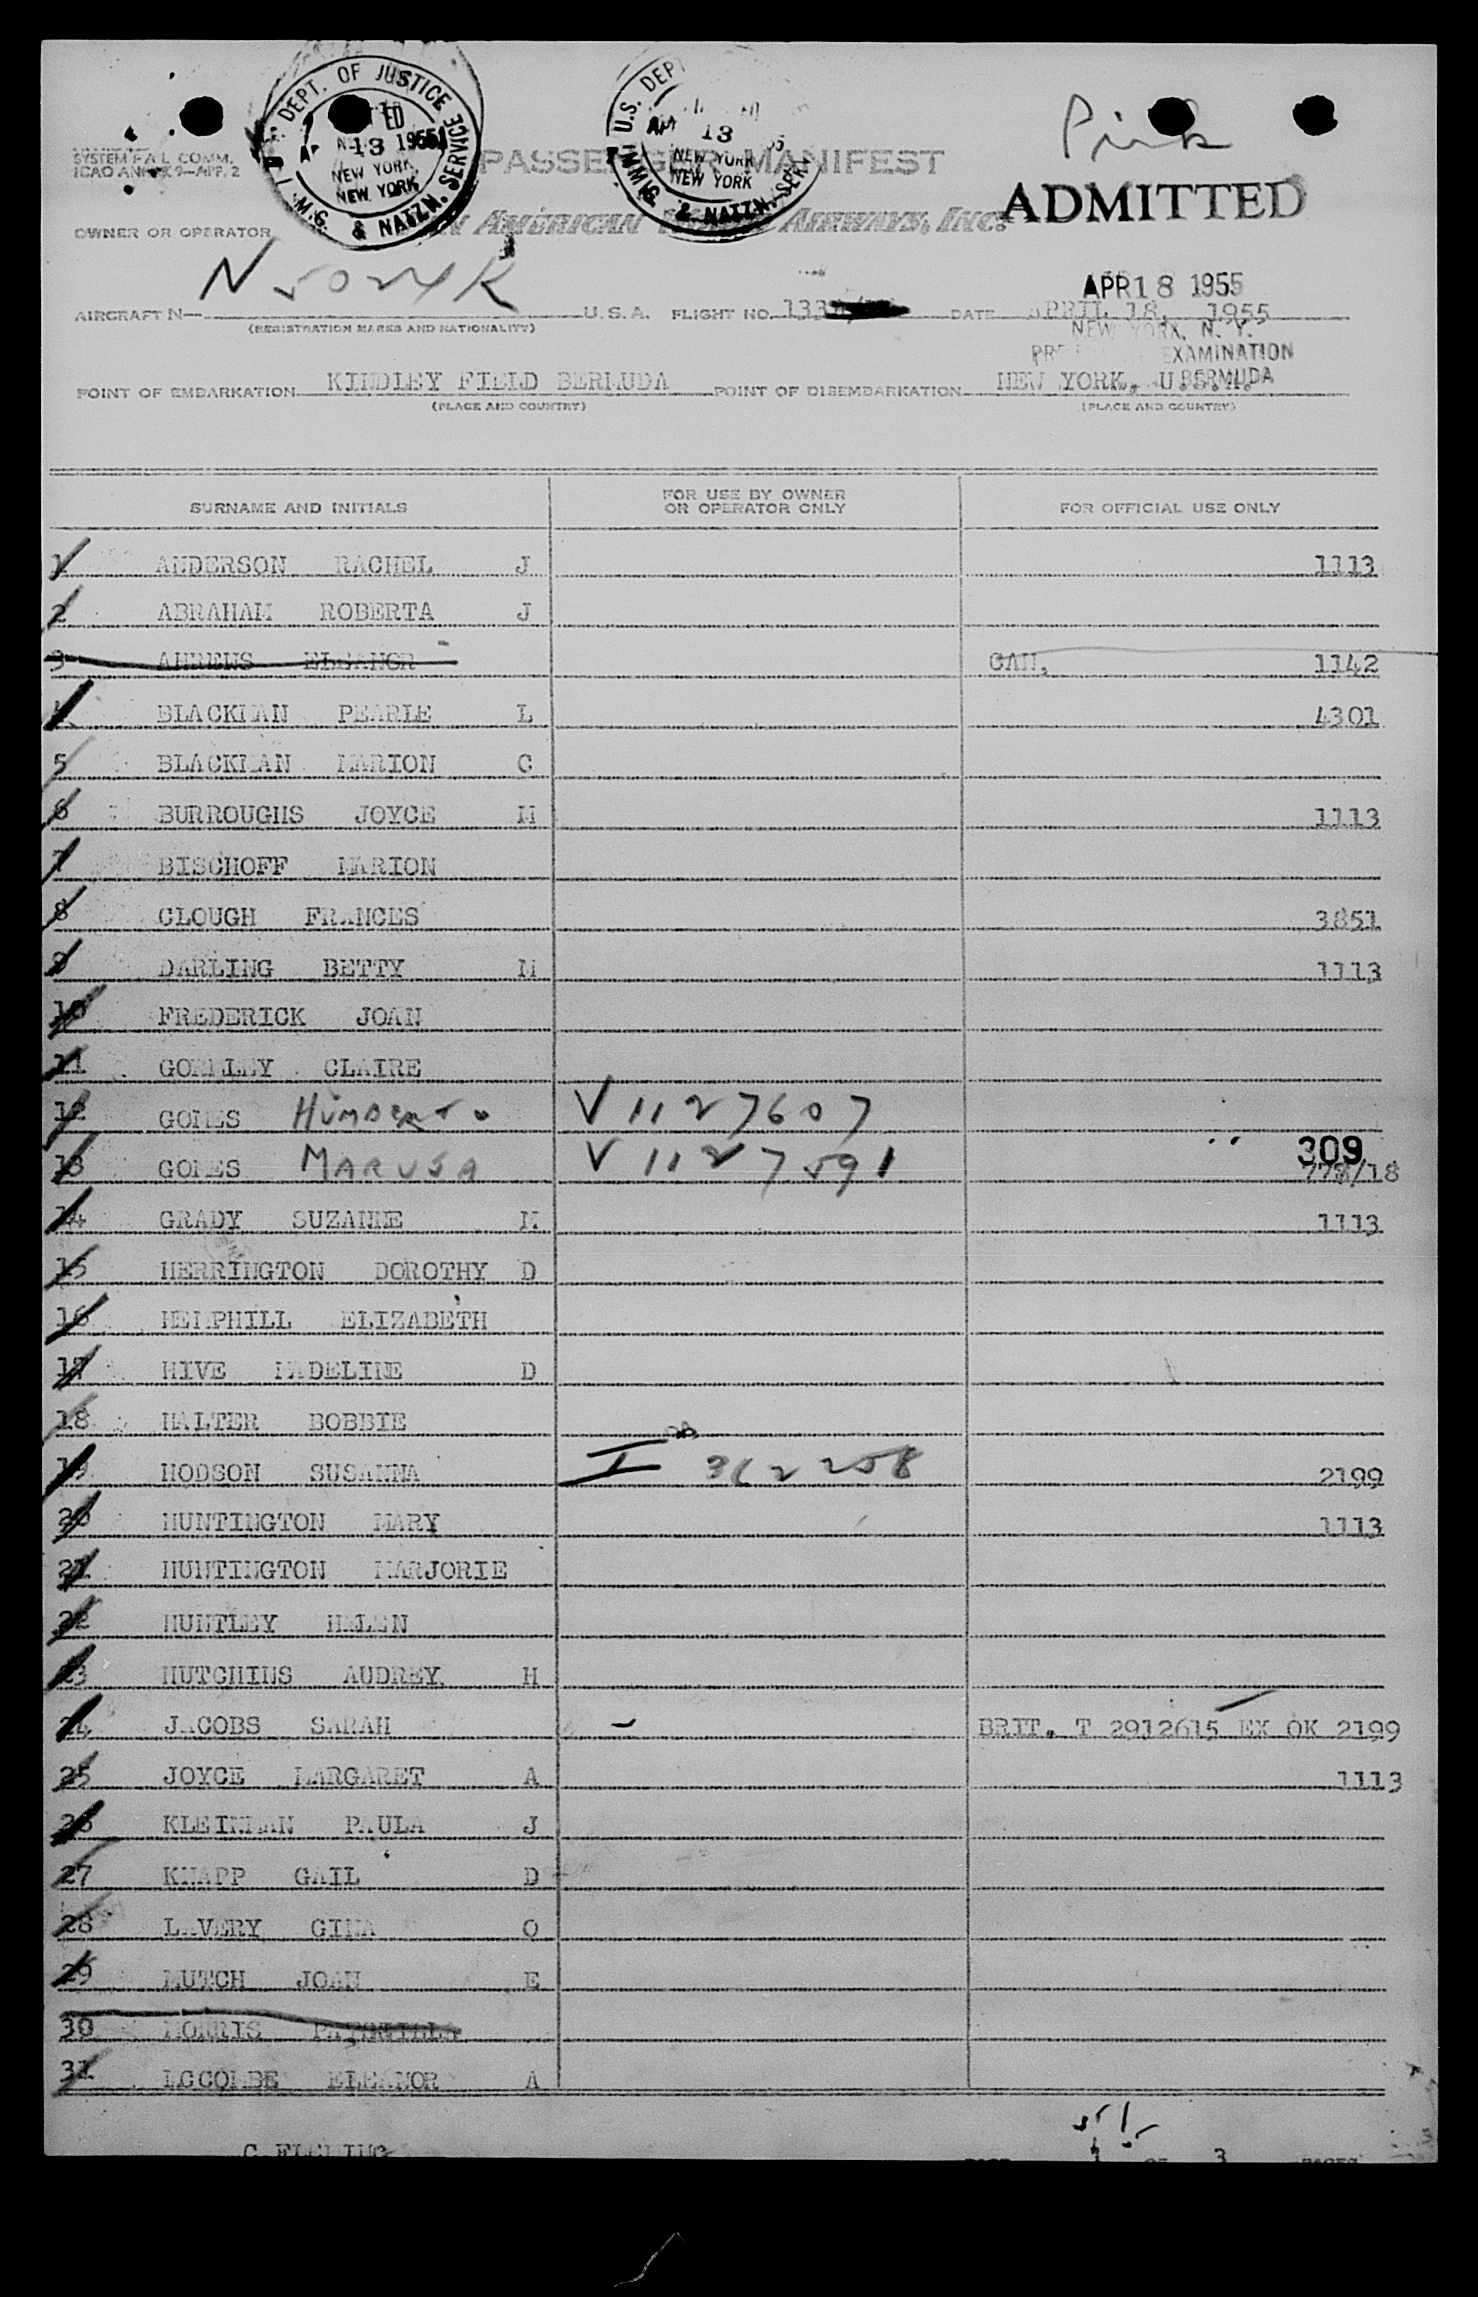 Pink
U.S. DEPT. OF JUSTICE
IMMIG. & NATZN. SERVICE
13 1955
NEW YORK
NEW YORK
U.S. DEPT
13
NEW YORK
NEW YORK
IMMI & NATZN. SERV
SYSTEM F A L COMM.
ICAO ANNEX 9—APP. 2
PASSENGER MANIFEST
ADMITTED
OWNER OR OPERATOR
AMERICAN AIRWAYS, INC.
APR 18 1955
AIRCRAFT N— N5024K U.S.A. FLIGHT NO. DATE APRIL 18, 1955
(REGISTRATION MARKS AND NATIONALITY)
NEW YORK, N. Y.
EXAMINATION
BERMUDA
POINT OF EMBARKATION KINDLEY FIELD BERMUDA POINT OF DISEMBARKATION NEW YORK, U.S.A.
(PLACE AND COUNTRY) (PLACE AND COUNTRY)
SURNAME AND INITIALS FOR USE BY OWNER OR OPERATOR ONLY FOR OFFICIAL USE ONLY
1 ANDERSON RACHEL J 1113
2 ABRAHAM ROBERTA J
3 AHRENS ELEANOR CAN. 1142
4 BLACKMAN PEARLE L 4301
5 BLACKMAN MARION C
6 BURROUGHS JOYCE M 1113
7 BISCHOFF MARION
8 CLOUGH FRANCES 3851
9 DARLING BETTY M 1113
10 FREDERICK JOAN
11 GORMLEY CLAIRE
12 GOMES HUMBERTO V 1127607
13 GOMES MARUSA V 1127591 309 778/18
14 GRADY SUZANNE M 1113
15 HERRINGTON DOROTHY D
16 HEMPHILL ELIZABETH
17 HIVE MADELINE D
18 HALTER BOBBIE
19 HODSON SUSANNA I 362258 2199
20 HUNTINGTON MARY 1113
21 HUNTINGTON MARJORIE
22 HUNTLEY HELEN
23 HUTCHINS AUDREY H
24 JACOBS SARAH BRIT. T 2912615 EX OK 2199
25 JOYCE MARGARET A 1113
26 KLEINMAN PAULA J
27 KNAPP GAIL D
28 LAVERY GINA O
29 MUTCH JOAN E
30 MORRIS
31 ELEANOR A
C FLEMING
1 OF 3 PAGES